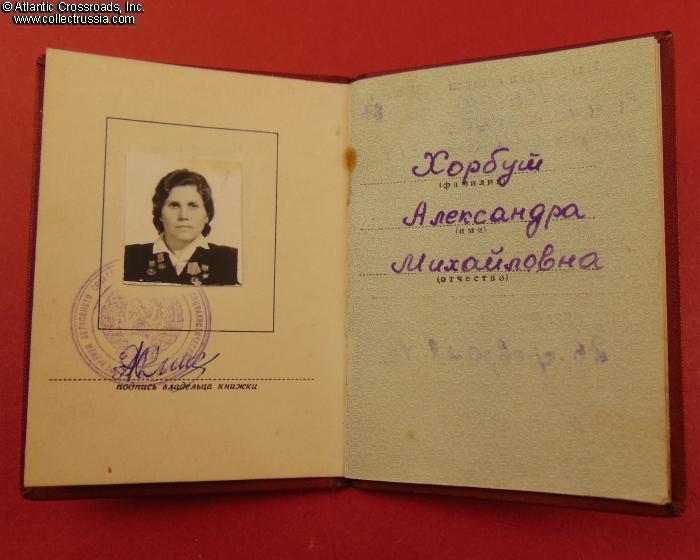 © Atlantic Crossroads, Inc.
www.collectrussia.com
подпись владельца книжки
Хорбут
(фамилия)
Александра
(имя)
Михайловна
(отчество)